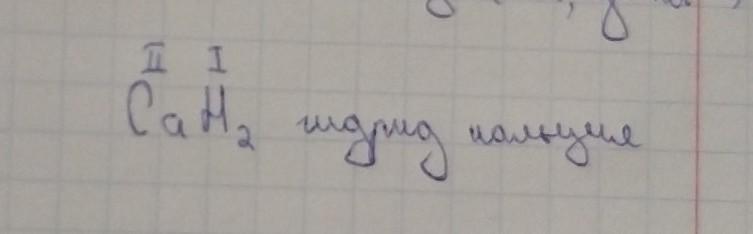 II I
CaH₂ гидрид кальция